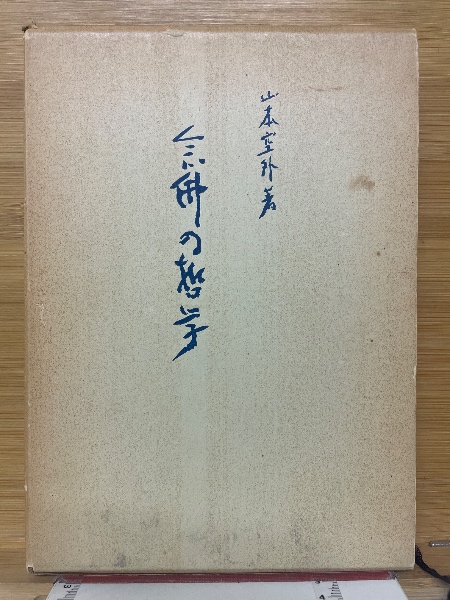 山本空外著
念佛の哲学